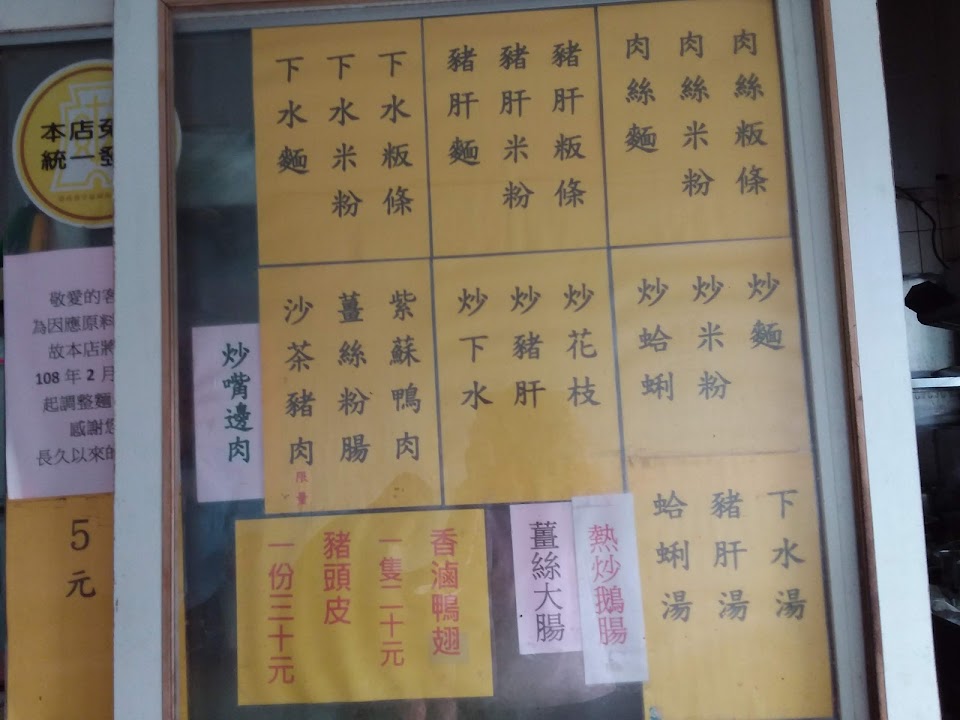 肉絲粄條
肉絲米粉
肉絲麵
豬肝粄條
豬肝米粉
豬肝麵
下水粄條
下水米粉
下水麵
炒麵
炒米粉
炒蛤蜊
炒花枝
炒豬肝
炒下水
紫蘇鴨肉
薑絲粉腸
沙茶豬肉
限量
炒嘴邊肉
下水湯
豬肝湯
蛤蜊湯
熱炒鵝腸
薑絲大腸
香滷鴨翅
一隻二十元
豬頭皮
一份三十元
本店
統一
敬愛的客
為因應原料
故本店將
108年2月
起調整麵
感謝您
長久以來的
5元